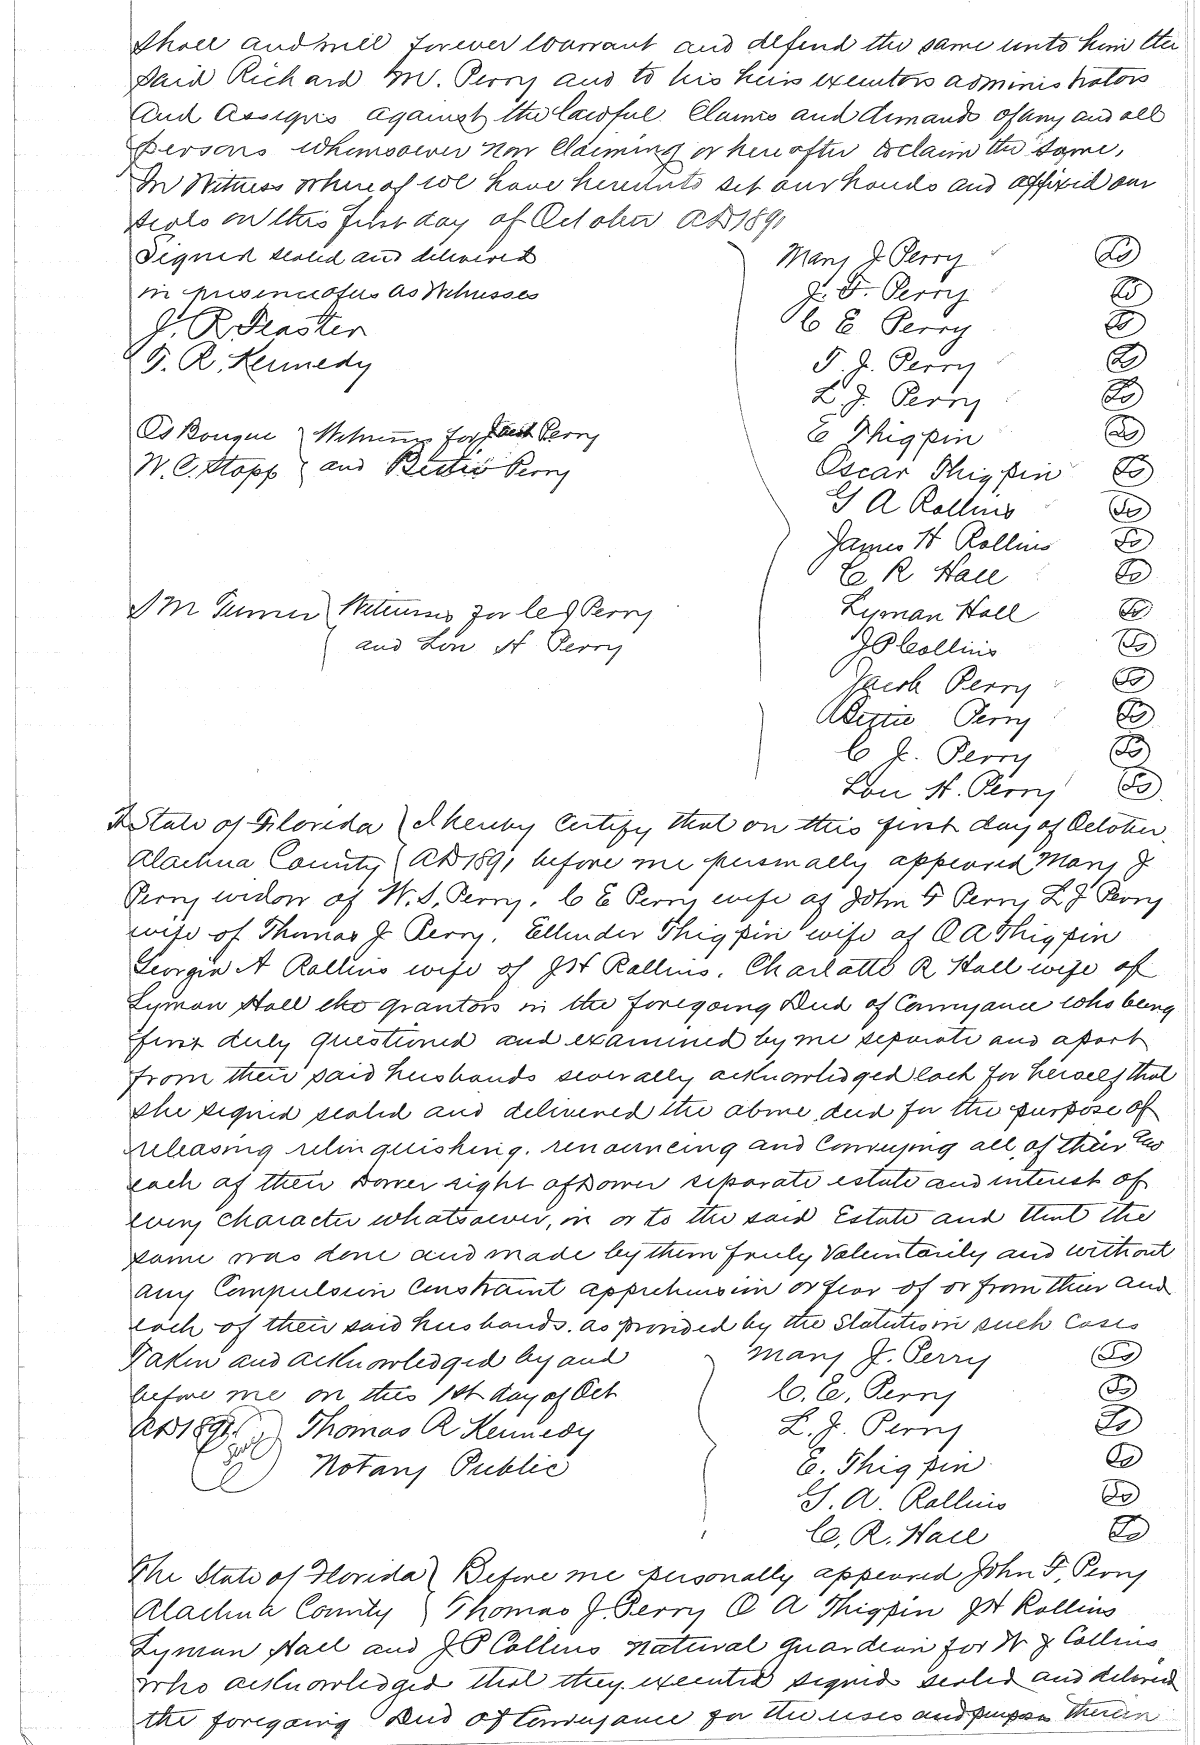 shall and will forever warrant and defend the same unto him the
said Richard M. Perry and to his heirs executors administrators
and assigns against the lawful Claims and demands of any and all
persons whomsoever now Claiming or hereafter to claim the same,
In Witness whereof we have hereunto set our hands and affixed our
seals on this first day of October AD 1891
Signed sealed and delivered
in presence of us as Witnesses
J. R. Feaster
T. R. Kennedy
Witness for Jacob Perry
W. C. Stapp and Bettie Perry
J M Turner Witnesses for C J Perry
and Lon H Perry
Mary J Perry LS
J. F. Perry LS
C E Perry LS
T. J. Perry LS
L. J. Perry LS
E Thigpin LS
Oscar Thigpin LS
G A Rollins LS
James H Rollins LS
C R Hall LS
Lyman Hall LS
J P Collins LS
Jacob Perry LS
Bettie Perry LS
C J. Perry LS
Lon H. Perry LS
State of Florida I hereby Certify that on this first day of October
Alachua County AD 1891 before me personally appeared Mary J
Perry widow of W. S. Perry, C E Perry wife of John F Perry L J Perry
wife of Thomas J Perry, Ellender Thigpin wife of O A Thigpin
Georgia A Rollins wife of J H Rollins, Charlotte R Hall wife of
Lyman Hall the grantors in the foregoing Deed of Conveyance who being
first duly questioned and examined by me separate and apart
from their said husbands severally acknowledged each for herself that
she signed sealed and delivered the above deed for the purpose of
releasing relinquishing, renouncing and Conveying all of their
each of their Dower right of Dower separate estate and interest of
every character whatsoever, in or to the said Estate and that the
same was done and made by them freely Voluntarily and without
any Compulsion Constraint apprehension or fear of or from their and
each of their said husbands, as provided by the Statutes in such Cases
Taken and acknowledged by and
before me on this 1st day of Oct
AD 1891 Thomas R Kennedy
Seal Notary Public
Mary J. Perry LS
C. E. Perry LS
L. J. Perry LS
E. Thigpin LS
G. A. Rollins LS
C. R. Hall LS
The State of Florida Before me personally appeared John F. Perry
Alachua County Thomas J. Perry O A Thigpin J H Rollins
Lyman Hall and J P Collins natural guardean for W J Collins
who acknowledged that they executed signed sealed and delivered
the foregoing Deed of Conveyance for the uses and purposes therein